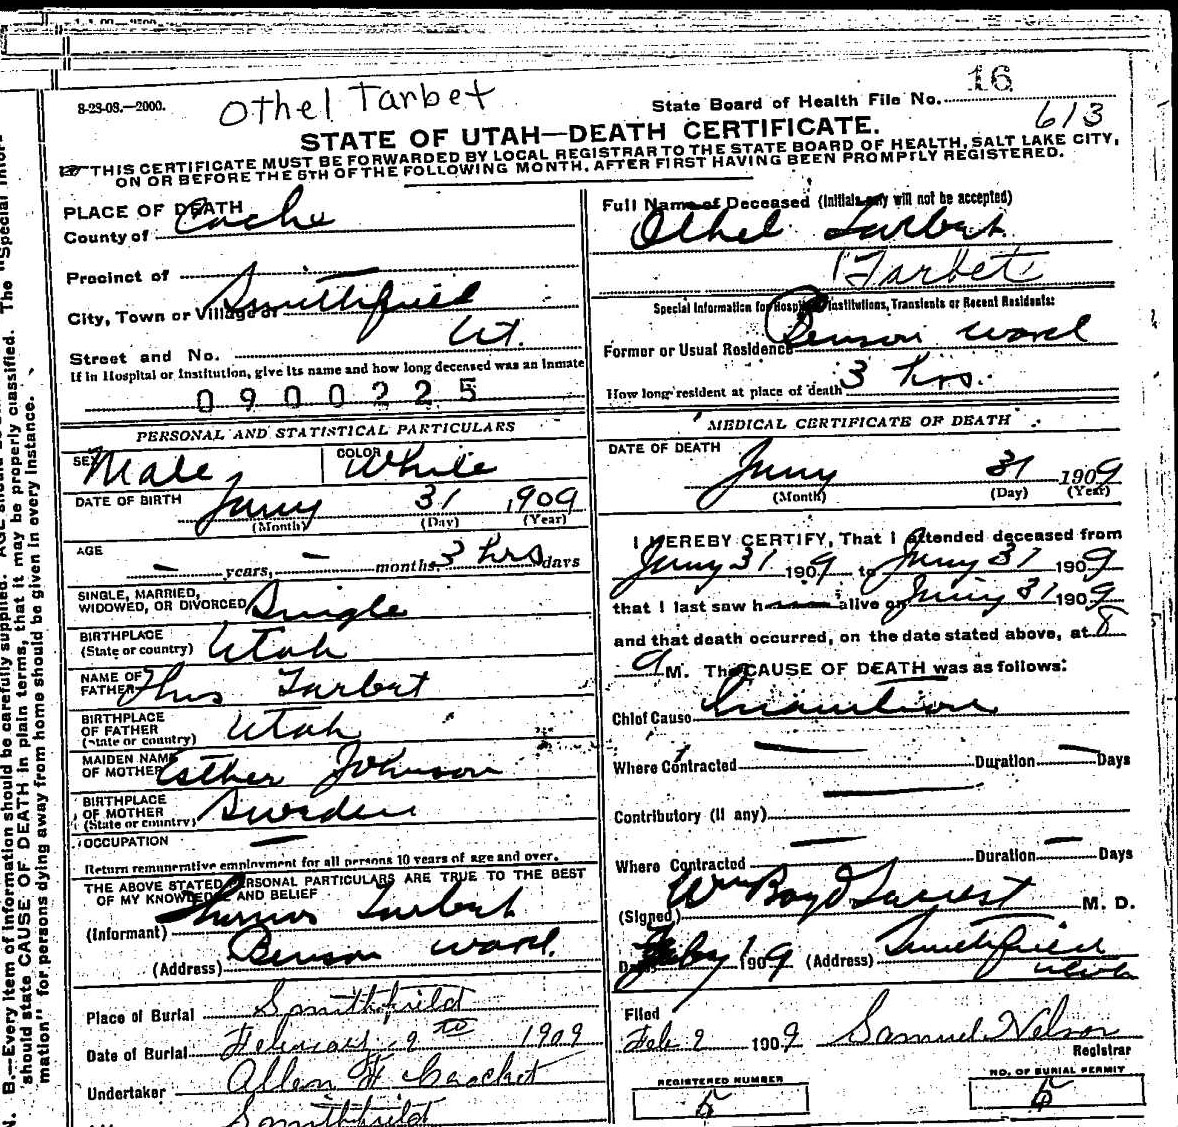 8-23-08.—2000.
Othel Tarbet
State Board of Health File No. 16
613
STATE OF UTAH—DEATH CERTIFICATE.
THIS CERTIFICATE MUST BE FORWARDED BY LOCAL REGISTRAR TO THE STATE BOARD OF HEALTH, SALT LAKE CITY,
ON OR BEFORE THE 5TH OF THE FOLLOWING MONTH, AFTER FIRST HAVING BEEN PROMPTLY REGISTERED.
PLACE OF DEATH
County of Cache
Precinct of
City, Town or Village of Smithfield
Ut.
Street and No.
If in Hospital or Institution, give its name and how long deceased was an inmate
0900225
PERSONAL AND STATISTICAL PARTICULARS
SEX Male, COLOR White
DATE OF BIRTH Jany 31 1909
(Month) (Day) (Year)
AGE
— years, — months, 3 hrs days
SINGLE, MARRIED,
WIDOWED, OR DIVORCED Single
BIRTHPLACE
(State or country) Utah
NAME OF
FATHER Thos Tarbet
BIRTHPLACE
OF FATHER
(State or country) Utah
MAIDEN NAME
OF MOTHER Esther Johnson
BIRTHPLACE
OF MOTHER
(State or country) Sweden
OCCUPATION —
Return remunerative employment for all persons 10 years of age and over.
THE ABOVE STATED PERSONAL PARTICULARS ARE TRUE TO THE BEST
OF MY KNOWLEDGE AND BELIEF
(Informant) Thomas Tarbet
(Address) Benson ward.
Place of Burial Smithfield
Date of Burial February 2nd 1909
Undertaker Allen
Smithfield
Full Name of Deceased (Initials only will not be accepted)
Othel Tarbet
Tarbet
Special Information for Hospitals, Institutions, Transients or Recent Residents:
Former or Usual Residence Benson ward
How long resident at place of death 3 hrs.
MEDICAL CERTIFICATE OF DEATH
DATE OF DEATH
Jany 31 1909
(Month) (Day) (Year)
I HEREBY CERTIFY, That I attended deceased from
Jany 31 1909 to Jany 31 1909
that I last saw h alive on Jany 31 1909
and that death occurred, on the date stated above, at 8
a M. The CAUSE OF DEATH was as follows:
Chief Cause Inanition
Where Contracted — Duration — Days
Contributory (If any) —
Where Contracted — Duration — Days
(Signed) Wm Boyd M. D.
Date Feby 1 1909 (Address) Smithfield
Utah
Filed
Feb 2 1909 Samuel Nelson
Registrar
REGISTERED NUMBER
5
NO. OF BURIAL PERMIT
5
N. B.—Every item of information should be carefully supplied. AGE should
should state CAUSE OF DEATH in plain terms, that it may be properly classified. The "Special Infor-
mation" for persons dying away from home should be given in every instance.